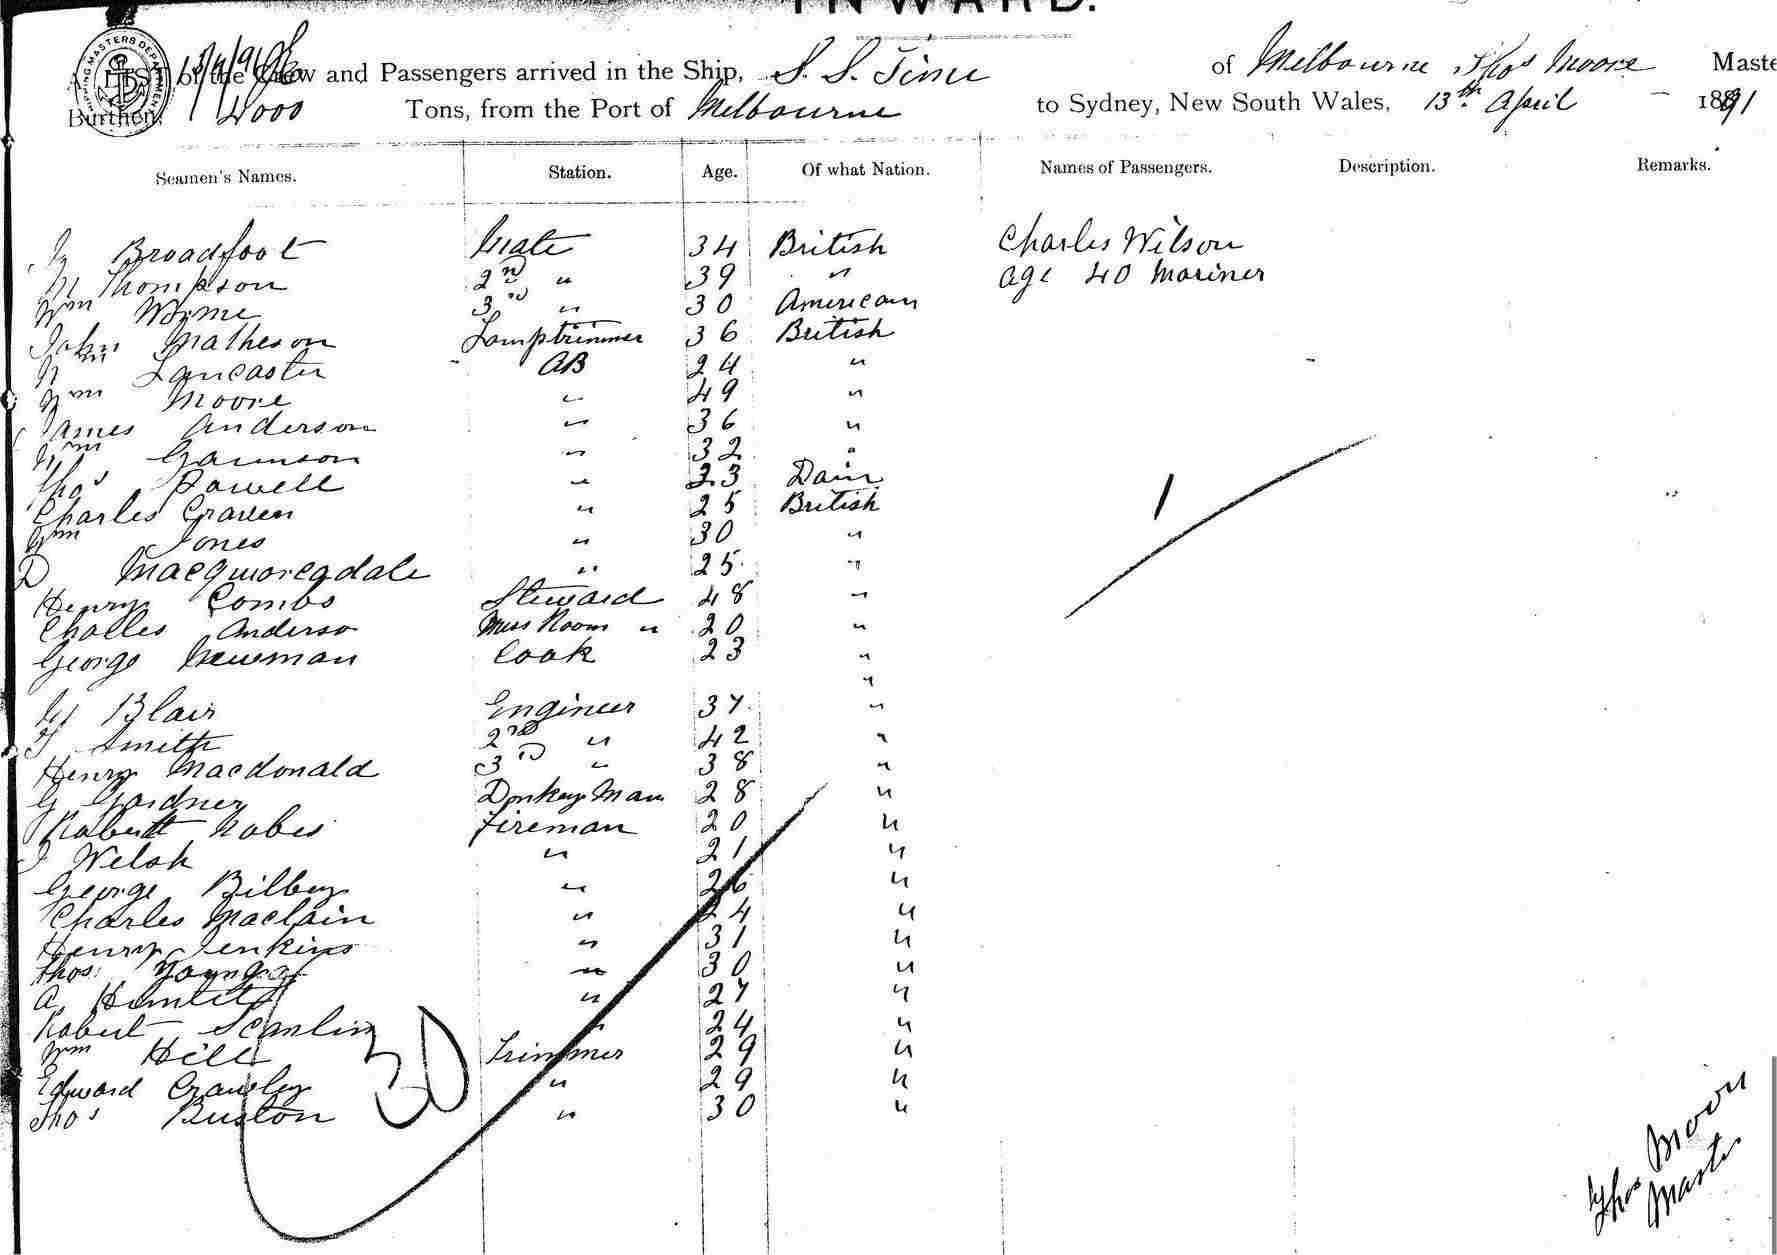 INWARD.
SHIPPING MASTERS DEPARTMENT
13/4/91
A LIST of the Crew and Passengers arrived in the Ship, S. S. Time of Melbourne, Thos Moore Maste
Burthen, 2000 Tons, from the Port of Melbourne to Sydney, New South Wales, 13th April 1891
Seamen's Names. Station. Age. Of what Nation. Names of Passengers. Description. Remarks.
Broadfoot Mate 34 British Charles Wilson
Thompson 2nd " 39 " age 40 Mariner
Wm 3rd " 30 American
John Matheson Lamptrimmer 36 British
Lancaster AB 24 "
Wm Moore " 49 "
James Anderson " 36 "
Wm " 32 "
Thos Powell " 23 Dain
Charles Craven " 25 British
Wm Jones " 30 "
D " 25 "
Henry Combs Steward 48 "
Charles Anderso Mess Room " 20 "
George Newman Cook 23 "
"
Blair Engineer 37 "
Smith 2nd " 42 "
Henry Macdonald 3rd " 38 "
G Gardner Donkey Man 28 "
Robert Fireman 20 "
Welsh " 21 "
George Bilbey " 26 "
Charles Maclain " 24 "
Henry Jenkins " 31 "
Thos: Young " 30 "
A. " 27 "
Robert Scanlin " 24 "
Wm Hill Trimmer 29 "
Edward Crawley " 29 "
Thos Buston " 30 "
1
30
Thos Moore
Master